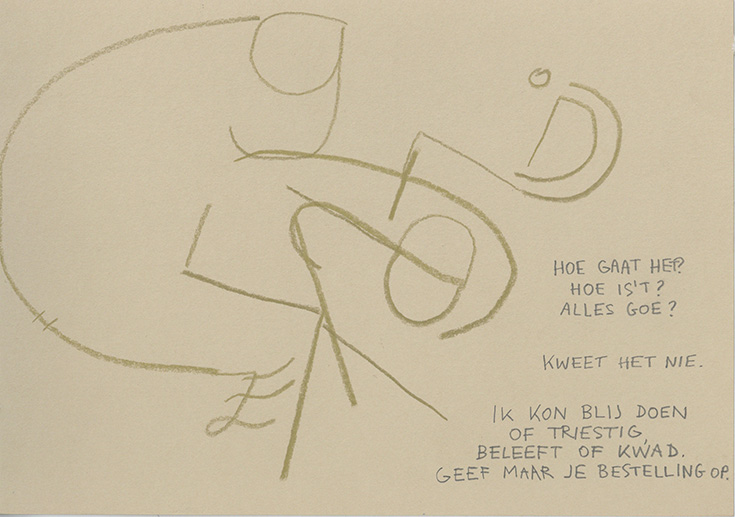 HOE GAAT HET?
HOE IS'T?
ALLES GOE?
KWEET HET NIE.
IK KON BLIJ DOEN
OF TRIESTIG,
BELEEFT OF KWAD.
GEEF MAAR JE BESTELLING OP.